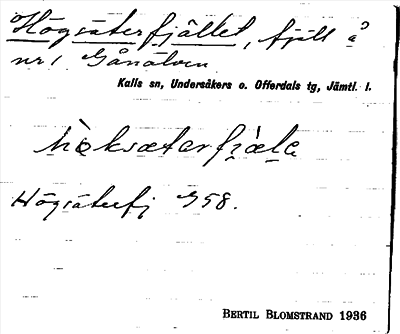 Högsäterfjället, fjäll å
nr 1 Gånälven
Kalls sn, Undersåkers o. Offerdals tg, Jämtl. l.
hòksætarfjæ̀lɛ
Högsäterfj G58.
BERTIL BLOMSTRAND 1936